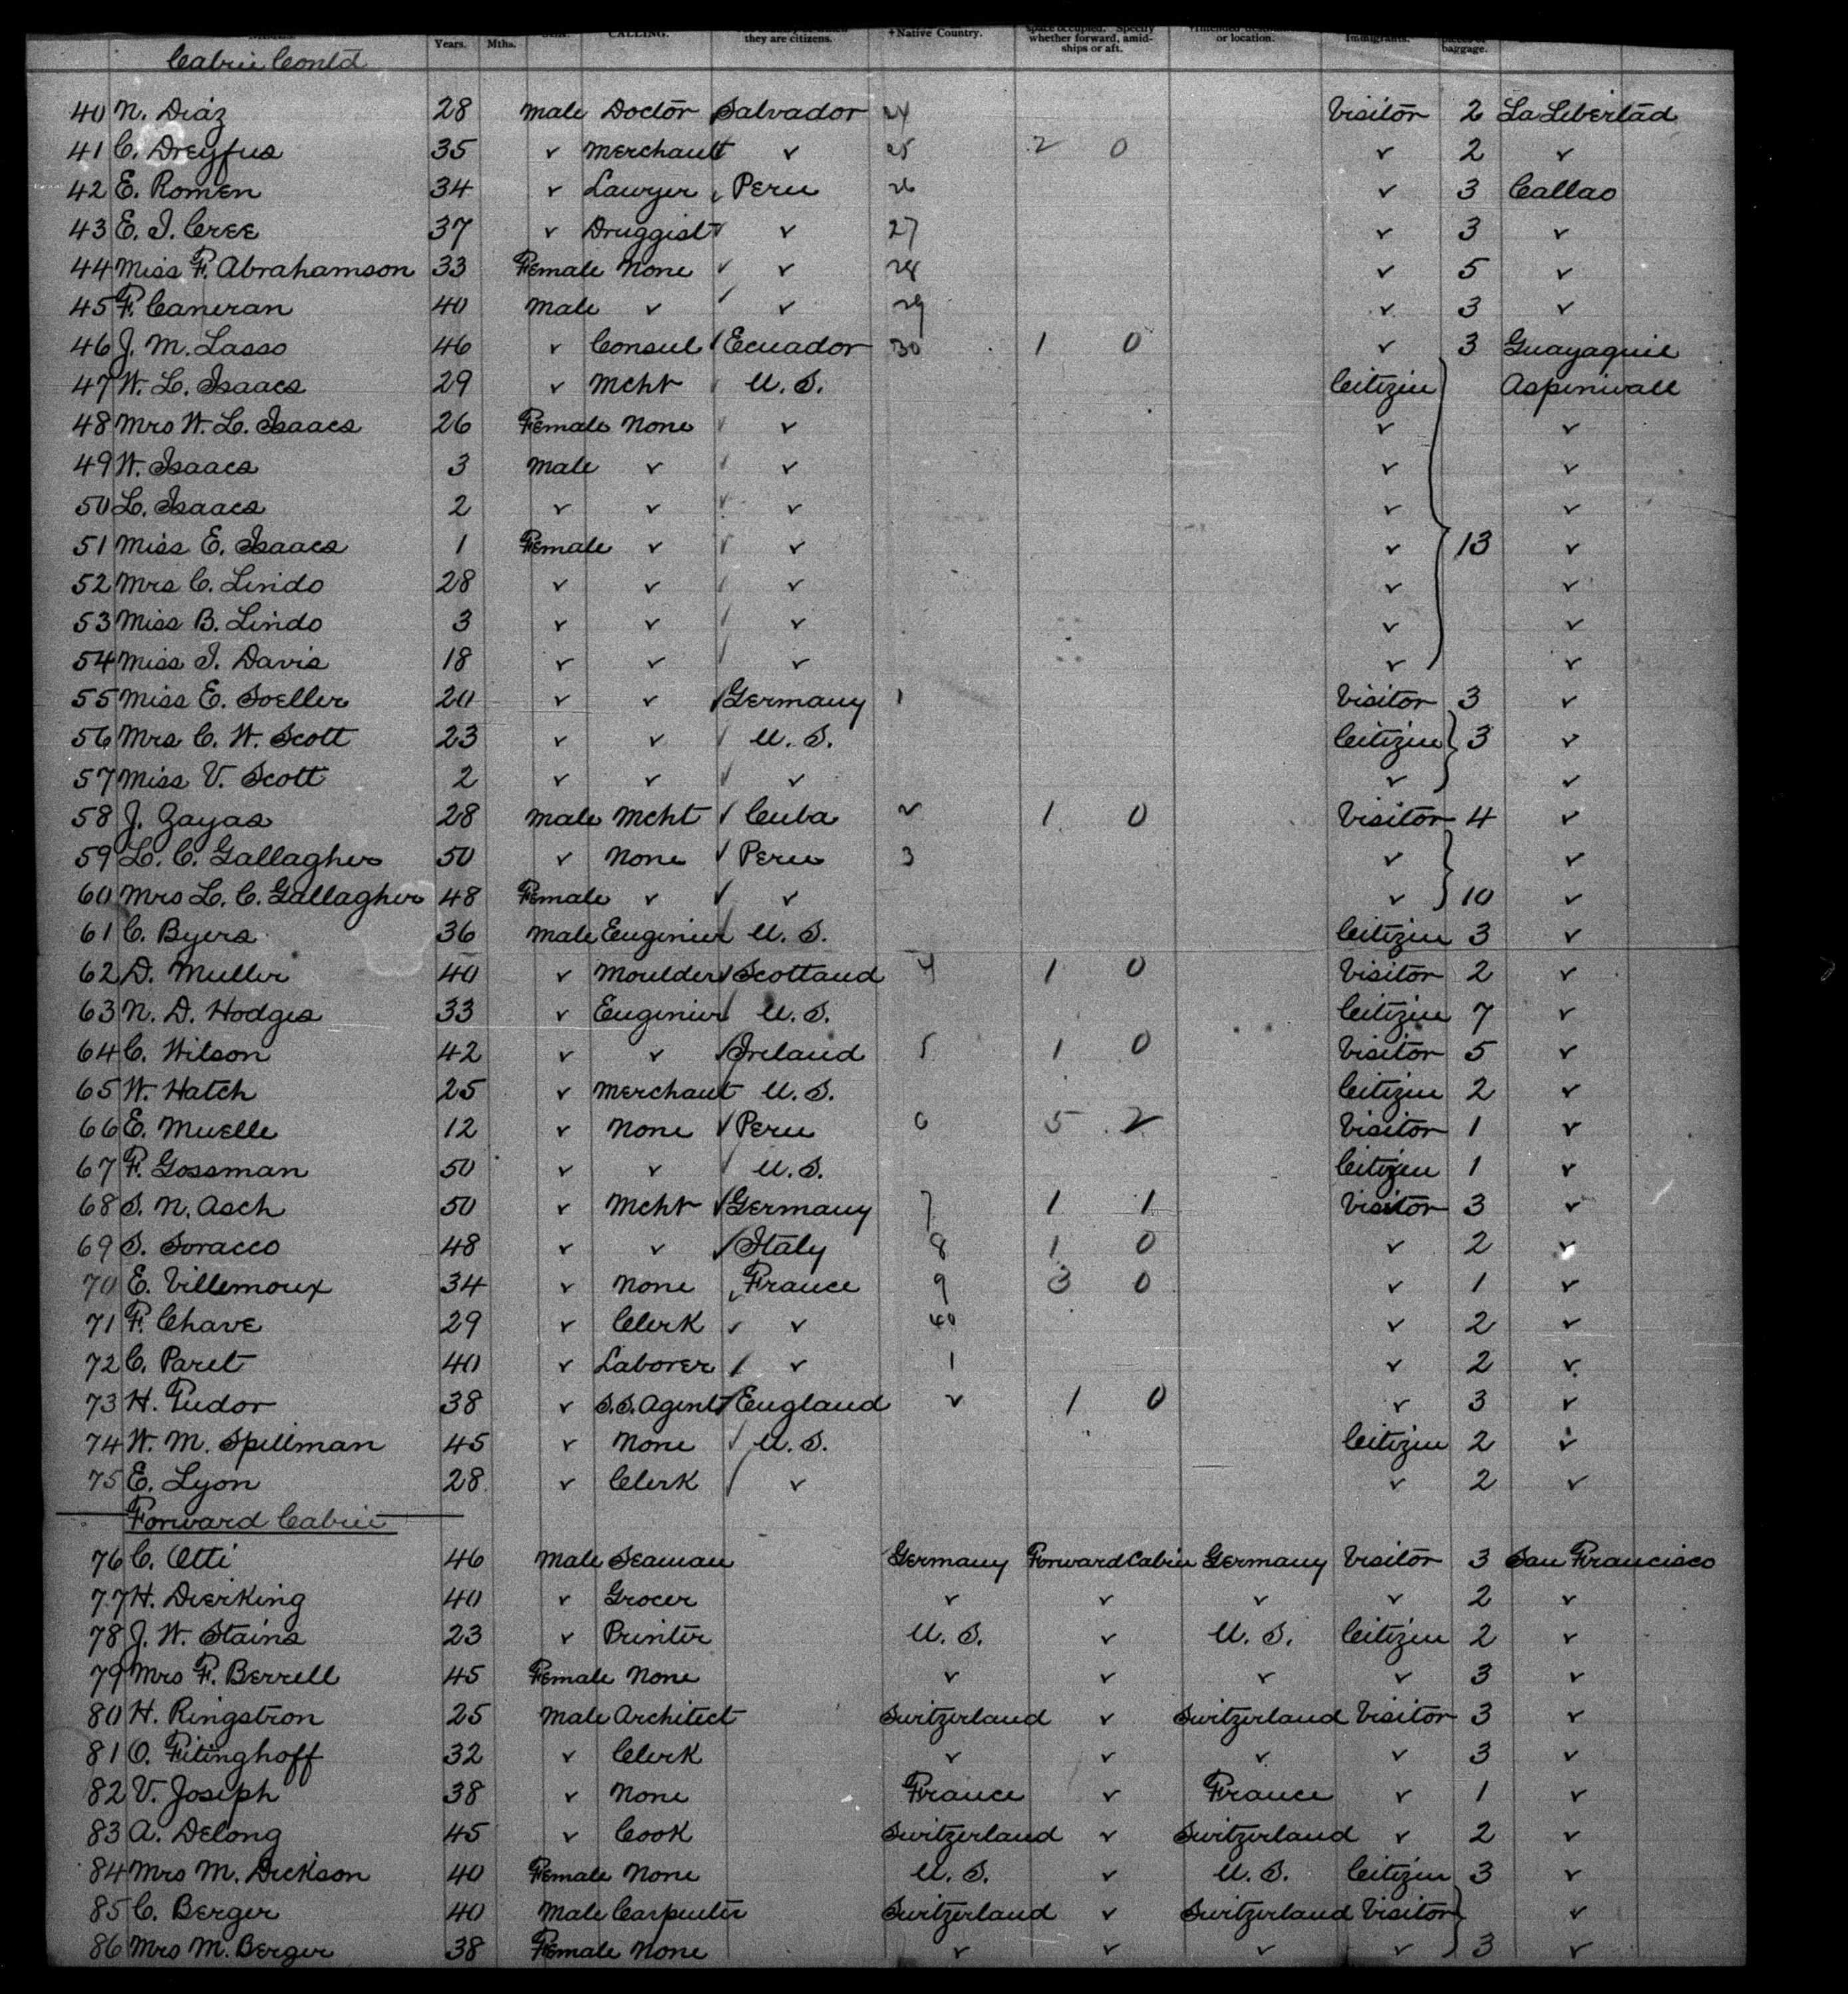 Years. Mths. CALLING. they are citizens. +Native Country. Space occupied. Specify whether forward, amidships or aft. or location. Immigrants. baggage.
Cabin Contd
40 N. Diaz 28 Male Doctor Salvador 24 Visitor 2 La Libertad
41 C. Dreyfus 35 v Merchant v 25 2 0 v 2 v
42 E. Romen 34 v Lawyer Peru 26 v 3 Callao
43 E. J. Cree 37 v Druggist v 27 v 3 v
44 Miss F. Abrahamson 33 Female None v 28 v 5 v
45 F. Caneran 40 Male v v 29 v 3 v
46 J. M. Lasso 46 v Consul Ecuador 30 1 0 v 3 Guayaquil
47 W. L. Isaacs 29 v Mcht U.S. Citizen Aspinwall
48 Mrs W. L. Isaacs 26 Female None v v v
49 W. Isaacs 3 Male v v v v
50 L. Isaacs 2 v v v v v
51 Miss E. Isaacs 1 Female v v v 13 v
52 Mrs C. Lindo 28 v v v v v
53 Miss B. Lindo 3 v v v v v
54 Miss I. Davis 18 v v v v v
55 Miss E. Soeller 20 v v Germany 1 Visitor 3 v
56 Mrs C. W. Scott 23 v v U.S. Citizen 3 v
57 Miss V. Scott 2 v v v v v
58 J. Zayas 28 Male Mcht Cuba 2 1 0 Visitor 4 v
59 L. C. Gallagher 50 v None Peru 3 v v
60 Mrs L. C. Gallagher 48 Female v v v 10 v
61 C. Byers 36 Male Engineer U.S. Citizen 3 v
62 D. Muller 40 v Moulder Scotland 4 1 0 Visitor 2 v
63 N. D. Hodges 33 v Engineer U.S. Citizen 7 v
64 C. Wilson 42 v v Ireland 5 1 0 Visitor 5 v
65 W. Hatch 25 v Merchant U.S. Citizen 2 v
66 E. Muelle 12 v None Peru 6 5 2 Visitor 1 v
67 F. Gossman 50 v v U.S. Citizen 1 v
68 S. N. Asch 50 v Mcht Germany 7 1 1 Visitor 3 v
69 S. Soracco 48 v v Italy 8 1 0 v 2 v
70 E. Villemoux 34 v None France 9 3 0 v 1 v
71 F. Chave 29 v Clerk v 40 v 2 v
72 C. Paret 40 v Laborer v 1 v 2 v
73 H. Tudor 38 v S.S. Agent England 2 1 0 v 3 v
74 W. M. Spillman 45 v None U.S. Citizen 2 v
75 E. Lyon 28 v Clerk v v 2 v
Forward Cabin
76 C. Otti 46 Male Seaman Germany Forward Cabin Germany Visitor 3 San Francisco
77 H. Dierking 40 v Grocer v v v v 2 v
78 J. W. Stains 23 v Printer U.S. v U.S. Citizen 2 v
79 Mrs F. Berrell 45 Female None v v v v 3 v
80 H. Ringstron 25 Male Architect Switzerland v Switzerland Visitor 3 v
81 O. Fitinghoff 32 v Clerk v v v v 3 v
82 V. Joseph 38 v None France v France v 1 v
83 A. Delong 45 v Cook Switzerland v Switzerland v 2 v
84 Mrs M. Dickson 40 Female None U.S. v U.S. Citizen 3 v
85 C. Berger 40 Male Carpenter Switzerland v Switzerland Visitor v
86 Mrs M. Berger 38 Female None v v v v 3 v